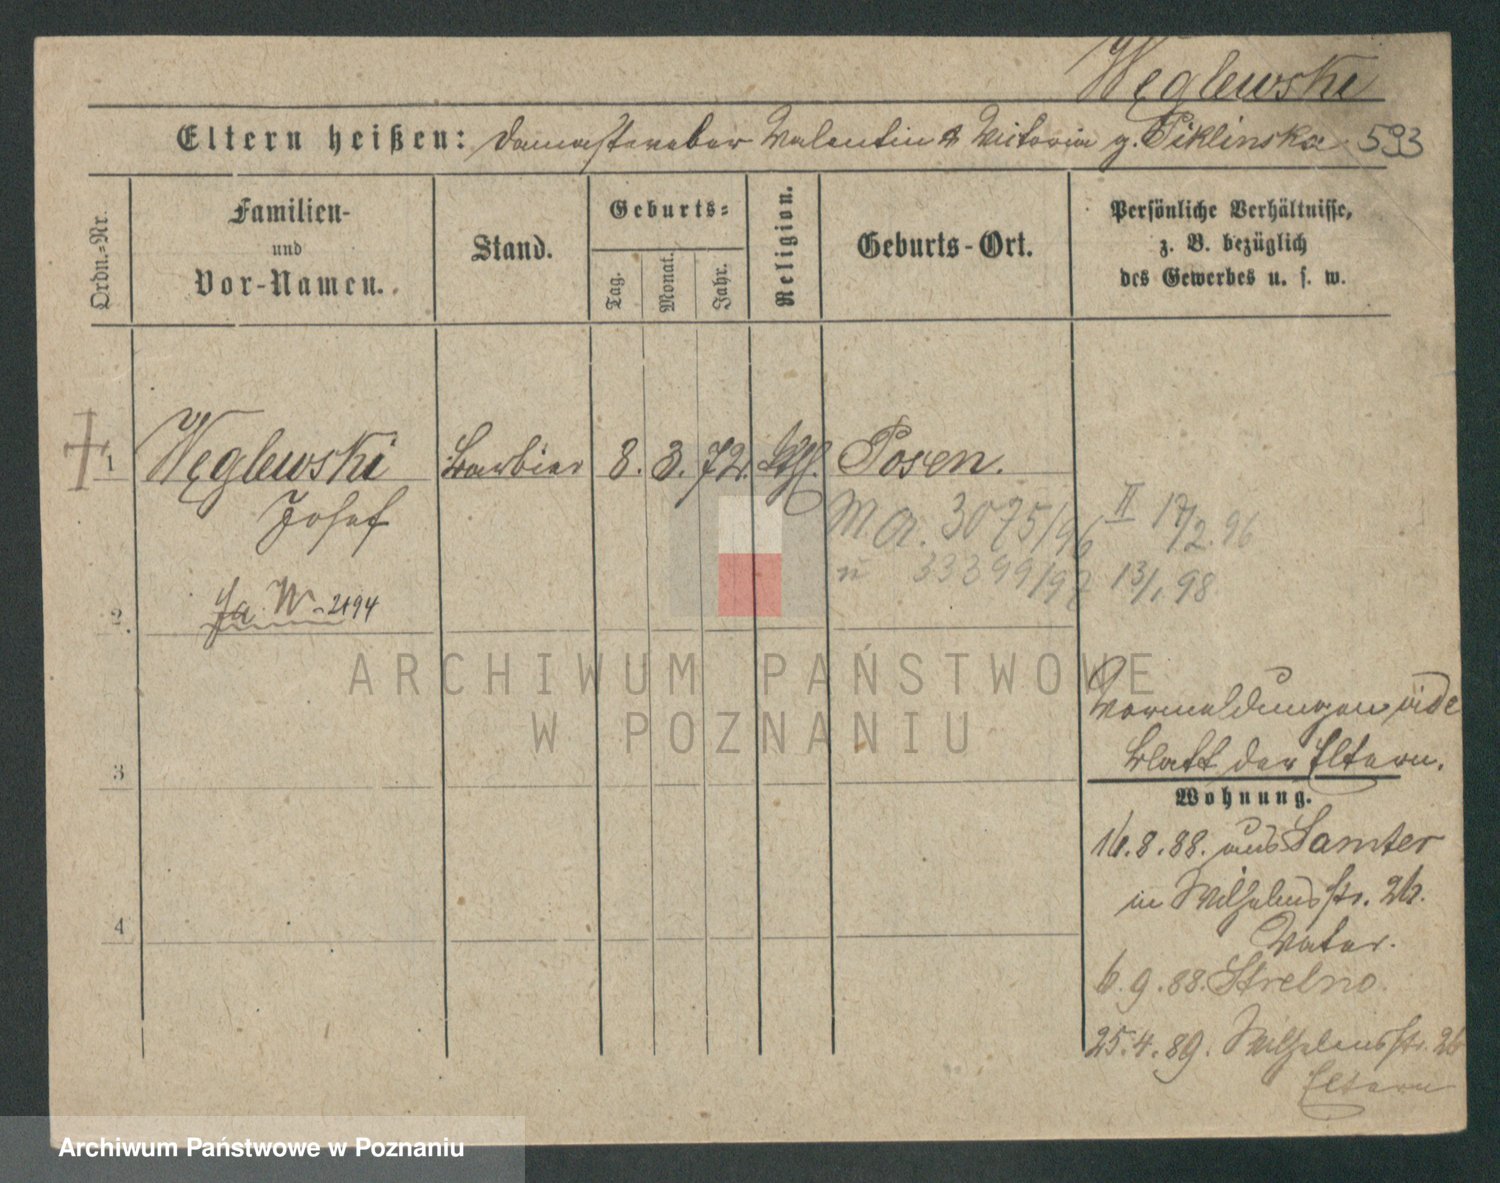 Węglewski
Eltern heißen: Valentin & Victoria g. Piklinska 593
Ordn.-Nr.
Familien-
und
Vor-Namen.
Stand.
Geburts-
Tag.
Monat.
Jahr.
Religion.
Geburts-Ort.
Persönliche Verhältnisse,
z. B. bezüglich
des Gewerbes u. s. w.
1 Węglewski Barbier 8. 3. 72. kth. Posen.
Josef
M. a. 3075/96 II 17/2. 96
u 33399/97 13/1 98
2.
3
4
Vormeldungen vide
Blatt der Eltern.
Wohnung.
16.8.88. aus Samter
in Wilhelmsstr. 26.
Vater.
6.9.88. Strelno.
25.4.89. Wilhelmsstr. 26
Eltern
ARCHIWUM PAŃSTWOWE
W POZNANIU
Archiwum Państwowe w Poznaniu